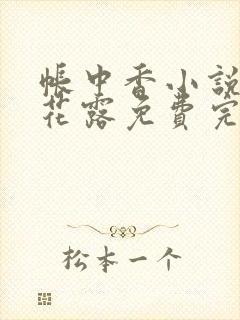 帳中香小說
花露免費完
松本一个